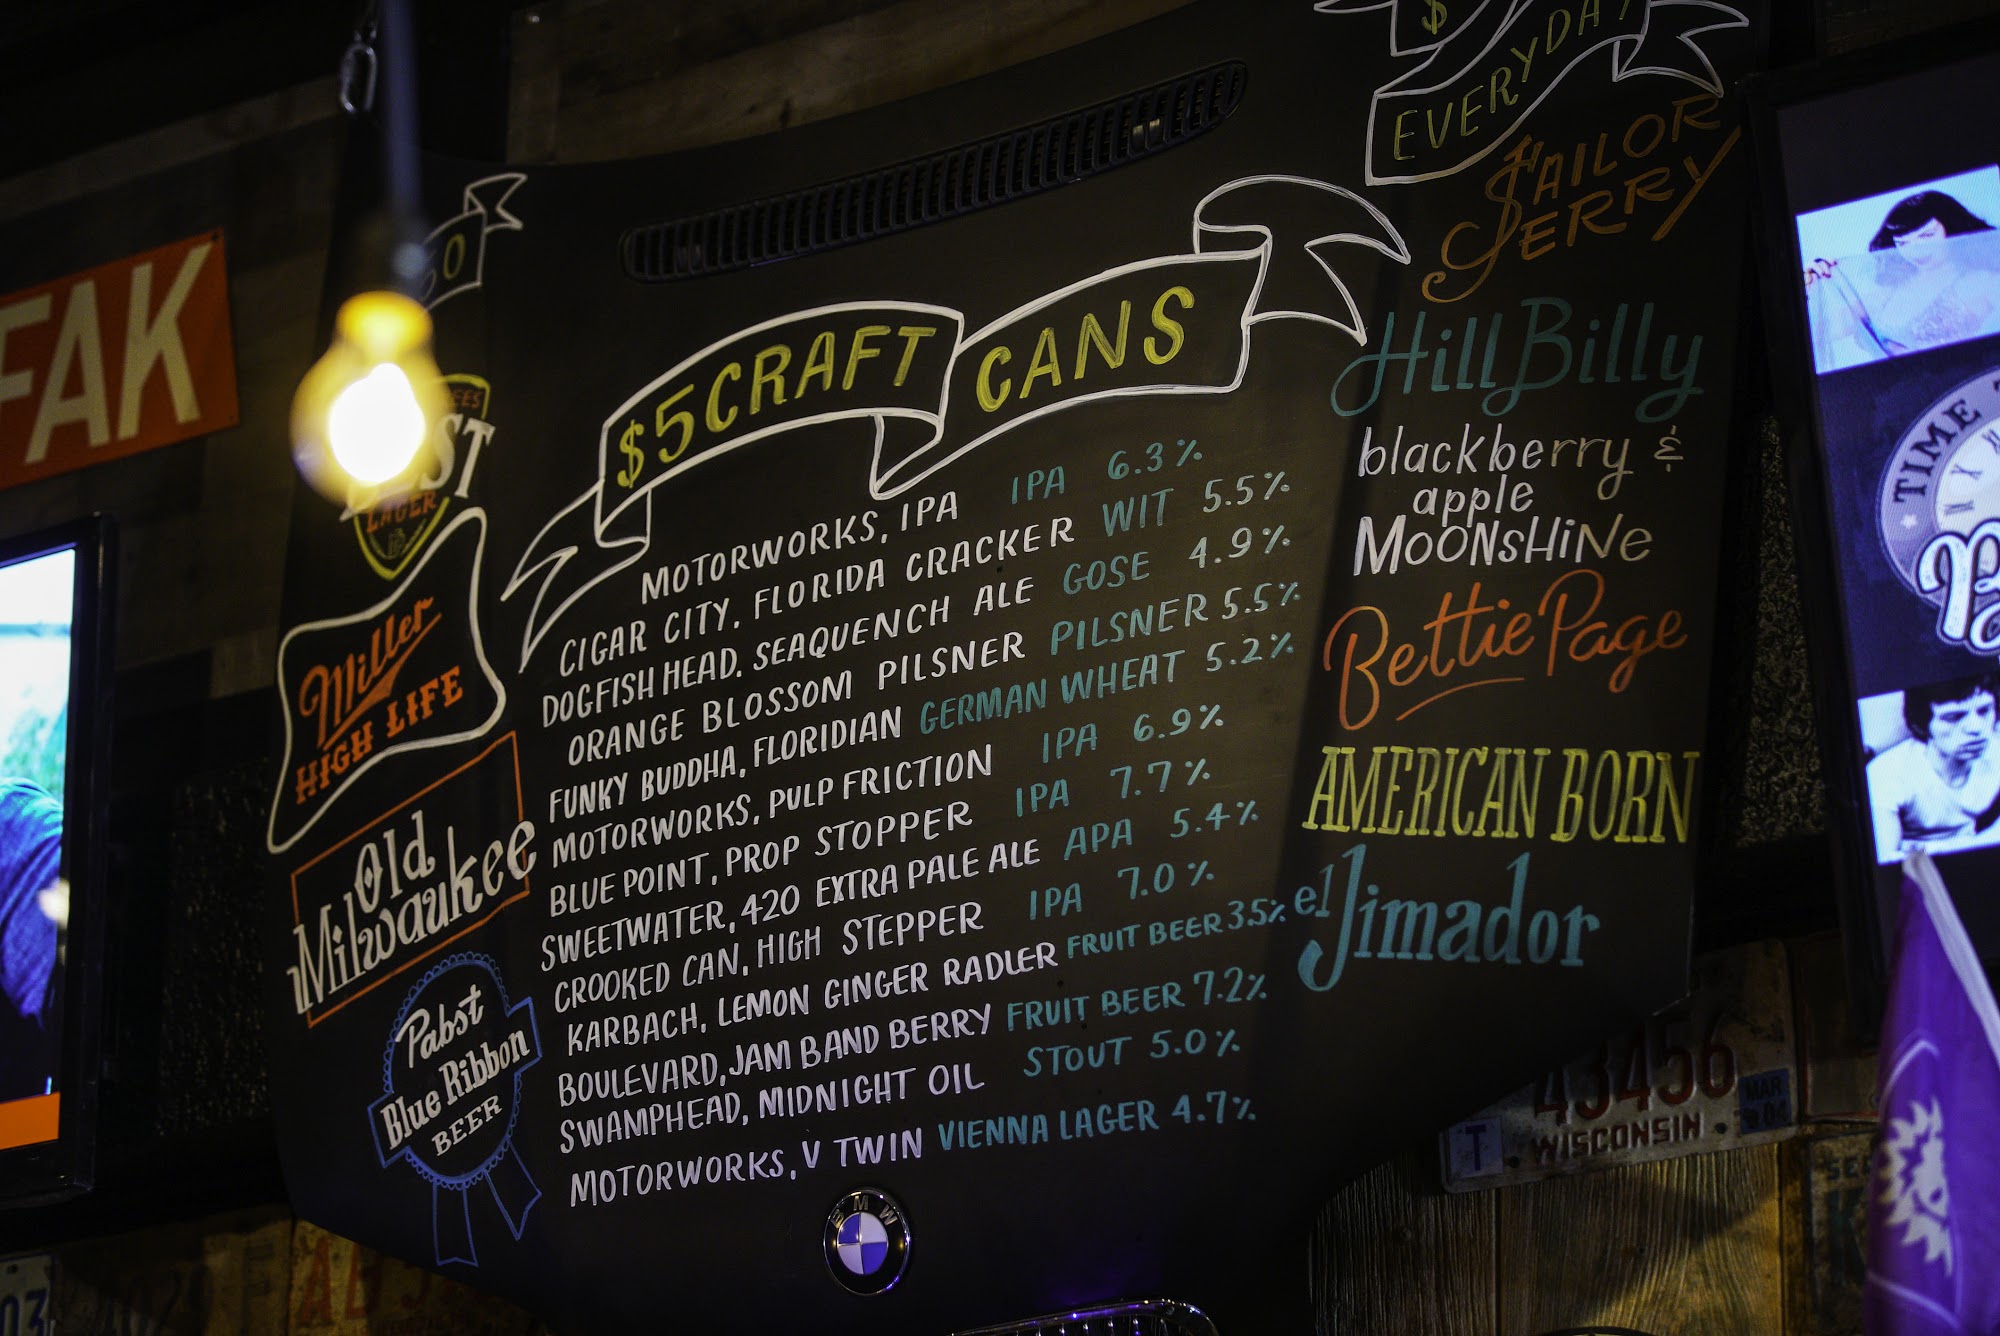 FAK
LAGER
Miller
HIGH LIFE
Old
Milwaukee
Pabst
Blue Ribbon
BEER
$5 CRAFT CANS
MOTORWORKS, IPA IPA 6.3%
CIGAR CITY. FLORIDA CRACKER WIT 5.5%
DOGFISH HEAD. SEAQUENCH ALE GOSE 4.9%
ORANGE BLOSSOM PILSNER PILSNER 5.5%
FUNKY BUDDHA, FLORIDIAN GERMAN WHEAT 5.2%
MOTORWORKS, PULP FRICTION IPA 6.9%
BLUE POINT, PROP STOPPER IPA 7.7%
SWEETWATER, 420 EXTRA PALE ALE APA 5.4%
CROOKED CAN, HIGH STEPPER IPA 7.0%
KARBACH, LEMON GINGER RADLER FRUIT BEER 3.5%
BOULEVARD, JAM BAND BERRY FRUIT BEER 7.2%
SWAMPHEAD, MIDNIGHT OIL STOUT 5.0%
MOTORWORKS, V TWIN VIENNA LAGER 4.7%
BMW
$
EVERYDAY
SAILOR
JERRY
HillBilly
blackberry &
apple
MOONSHiNe
Bettie Page
AMERICAN BORN
el Jimador
TIME
43456
T WISCONSIN MAR
03